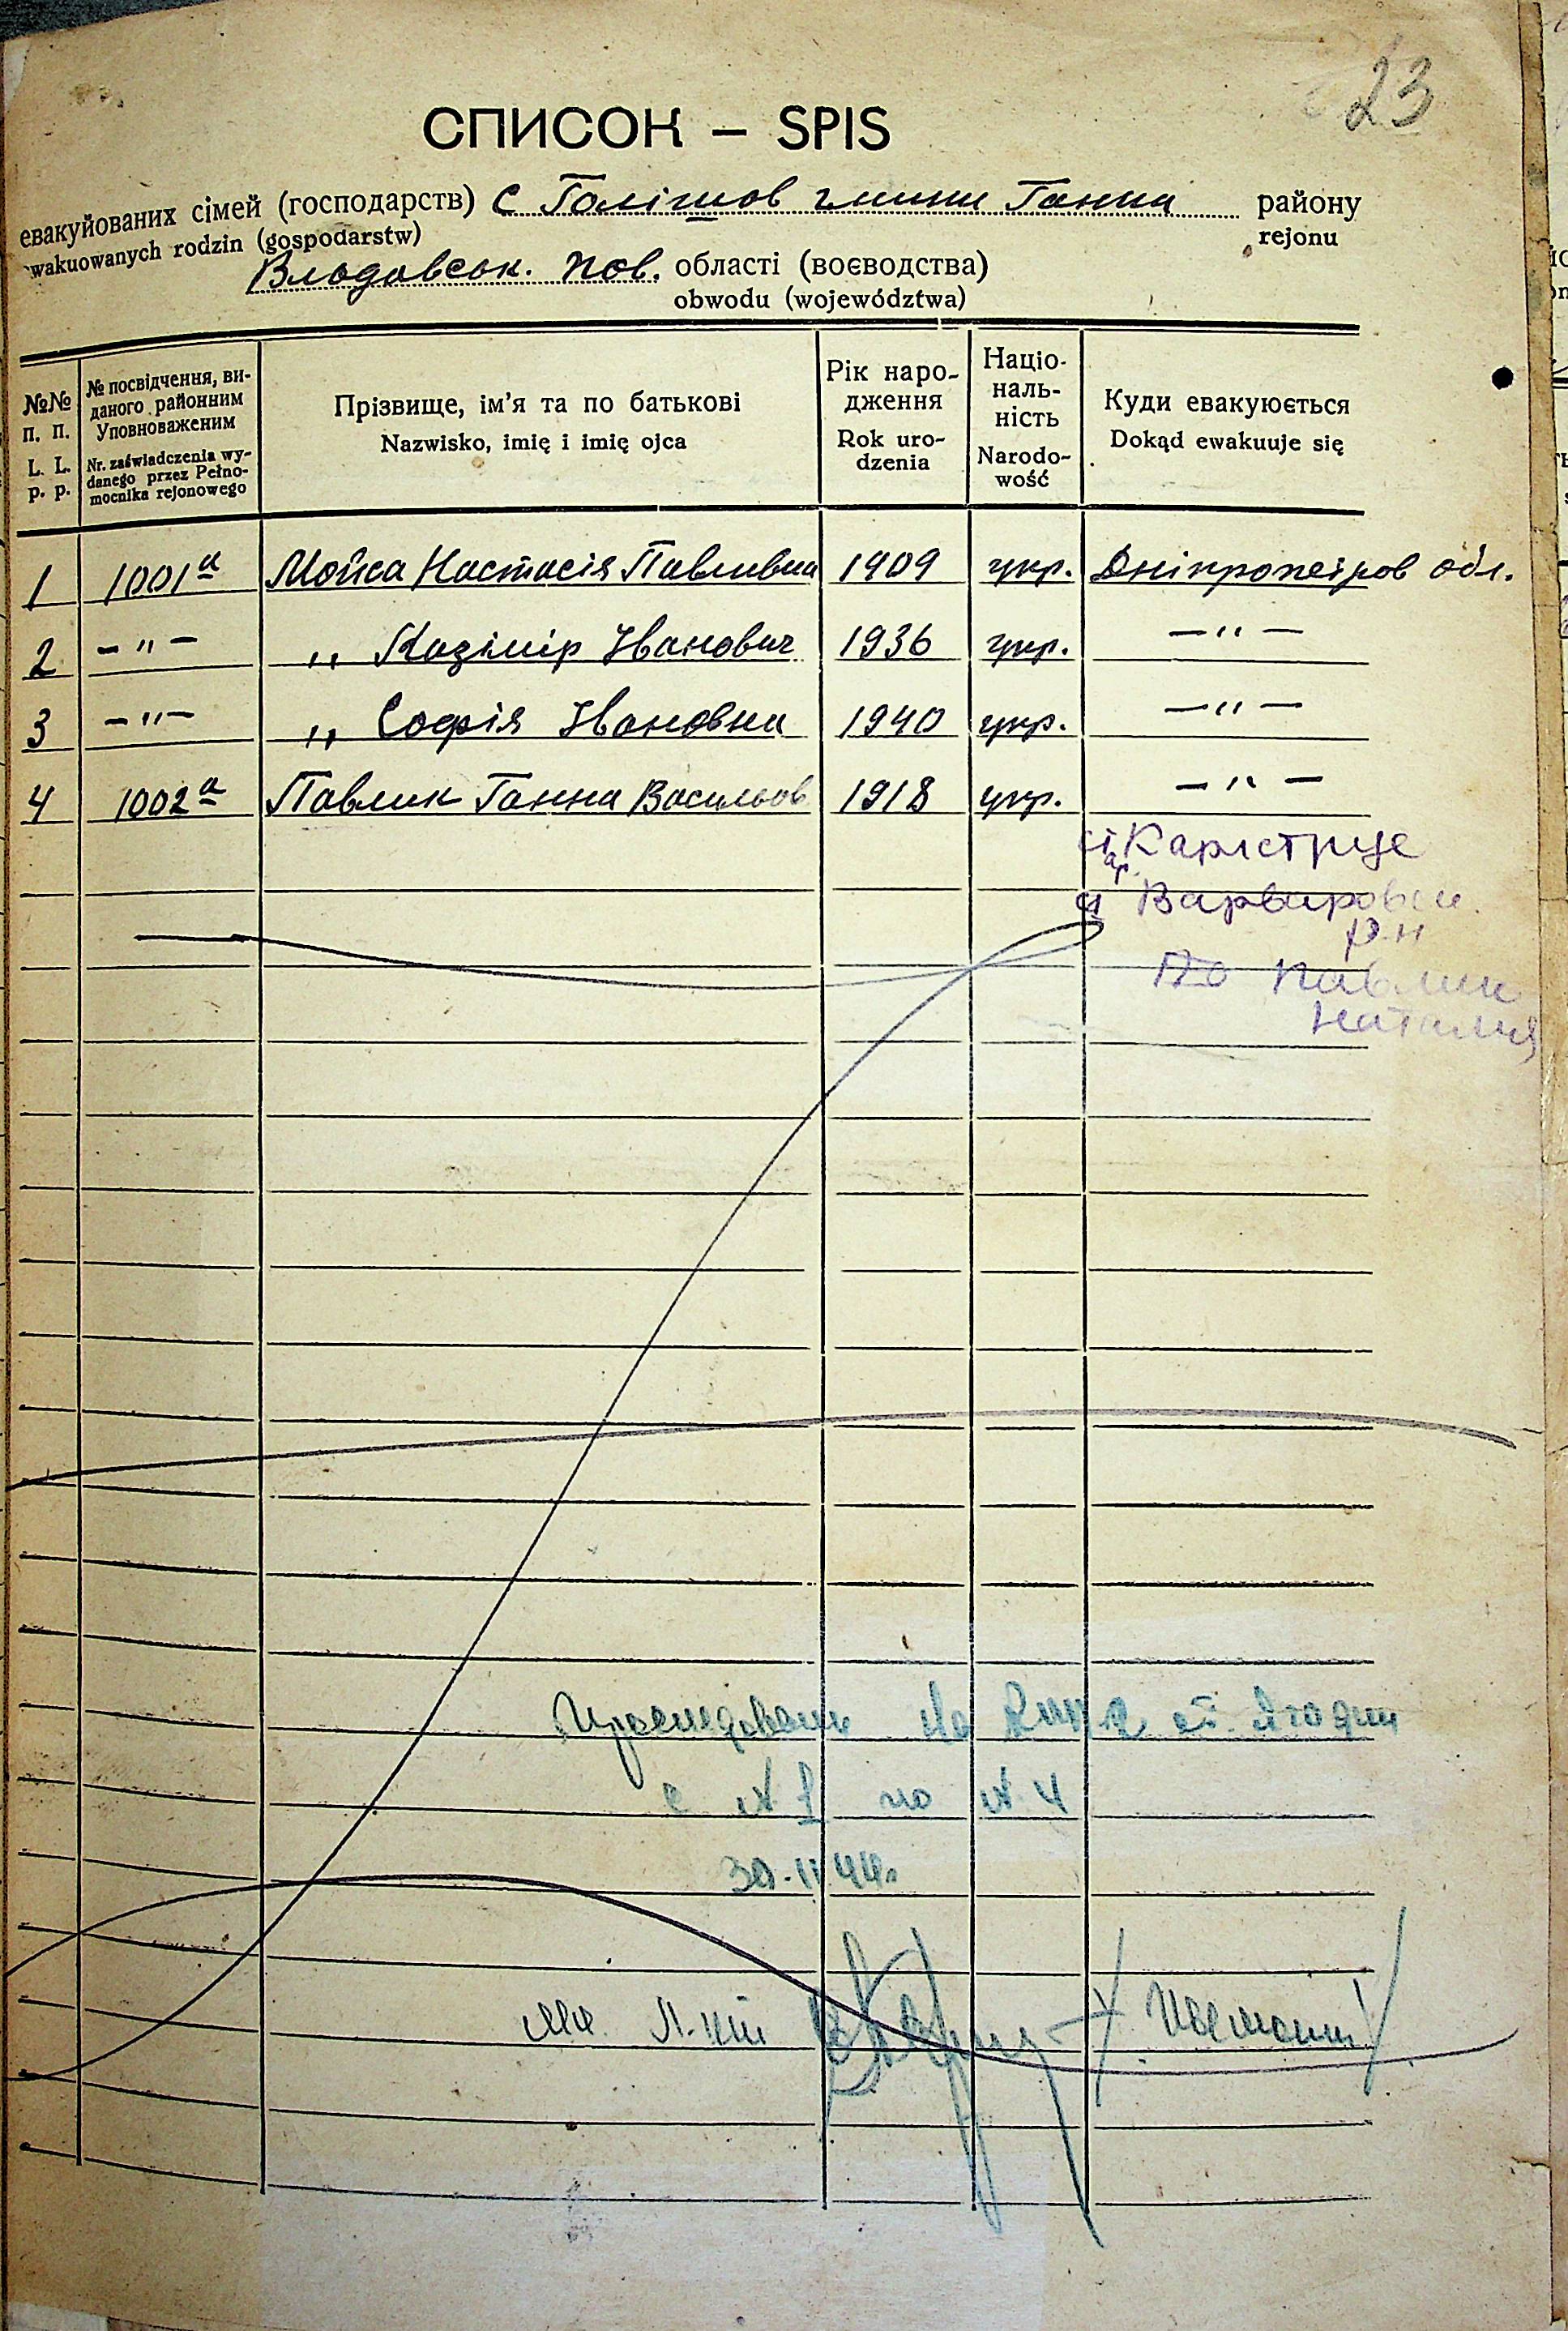 23
СПИСОК – SPIS
евакуйованих сімей (господарств) с Голішов гмини Ганна району
ewakuowanych rodzin (gospodarstw) rejonu
Влодавськ. пов. області (воєводства)
obwodu (województwa)
№№ п. п. L. L. p. p.
№ посвідчення, виданого районним Уповноваженим Nr. zaświadczenia wydanego przez Pełnomocnika rejonowego
Прізвище, ім'я та по батькові Nazwisko, imię i imię ojca
Рік народження Rok urodzenia
Національність Narodowość
Куди евакуюється Dokąd ewakuuje się
1 1001а Мойса Настасія Павлівна 1909 укр. Дніпропетров обл.
2 – „ – „ Казімір Іванович 1936 укр. – „ –
3 – „ – „ Софія Івановна 1940 укр. – „ –
4 1002а Павлик Ганна Васильов 1918 укр. – „ –
р-н
по Павлик
Наталия
ст. Ягодин
с № 1 по № 4
30.11.44г.